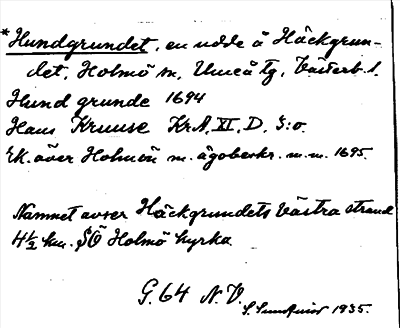 *Hundgrundet, en udde å Häckgrun-
det, Holmö sn, Umeå tg, Västerb. l.
Hund grunde 1694
Hans Kruuse KrA. XI. D. 3:o.
EK. över Holmön m. ägobeskr. m.m. 1695.
Namnet avser Häckgrundets västra strand
4½ km. SÖ Holmö kyrka
G. 64 N. V.
S. 1935.